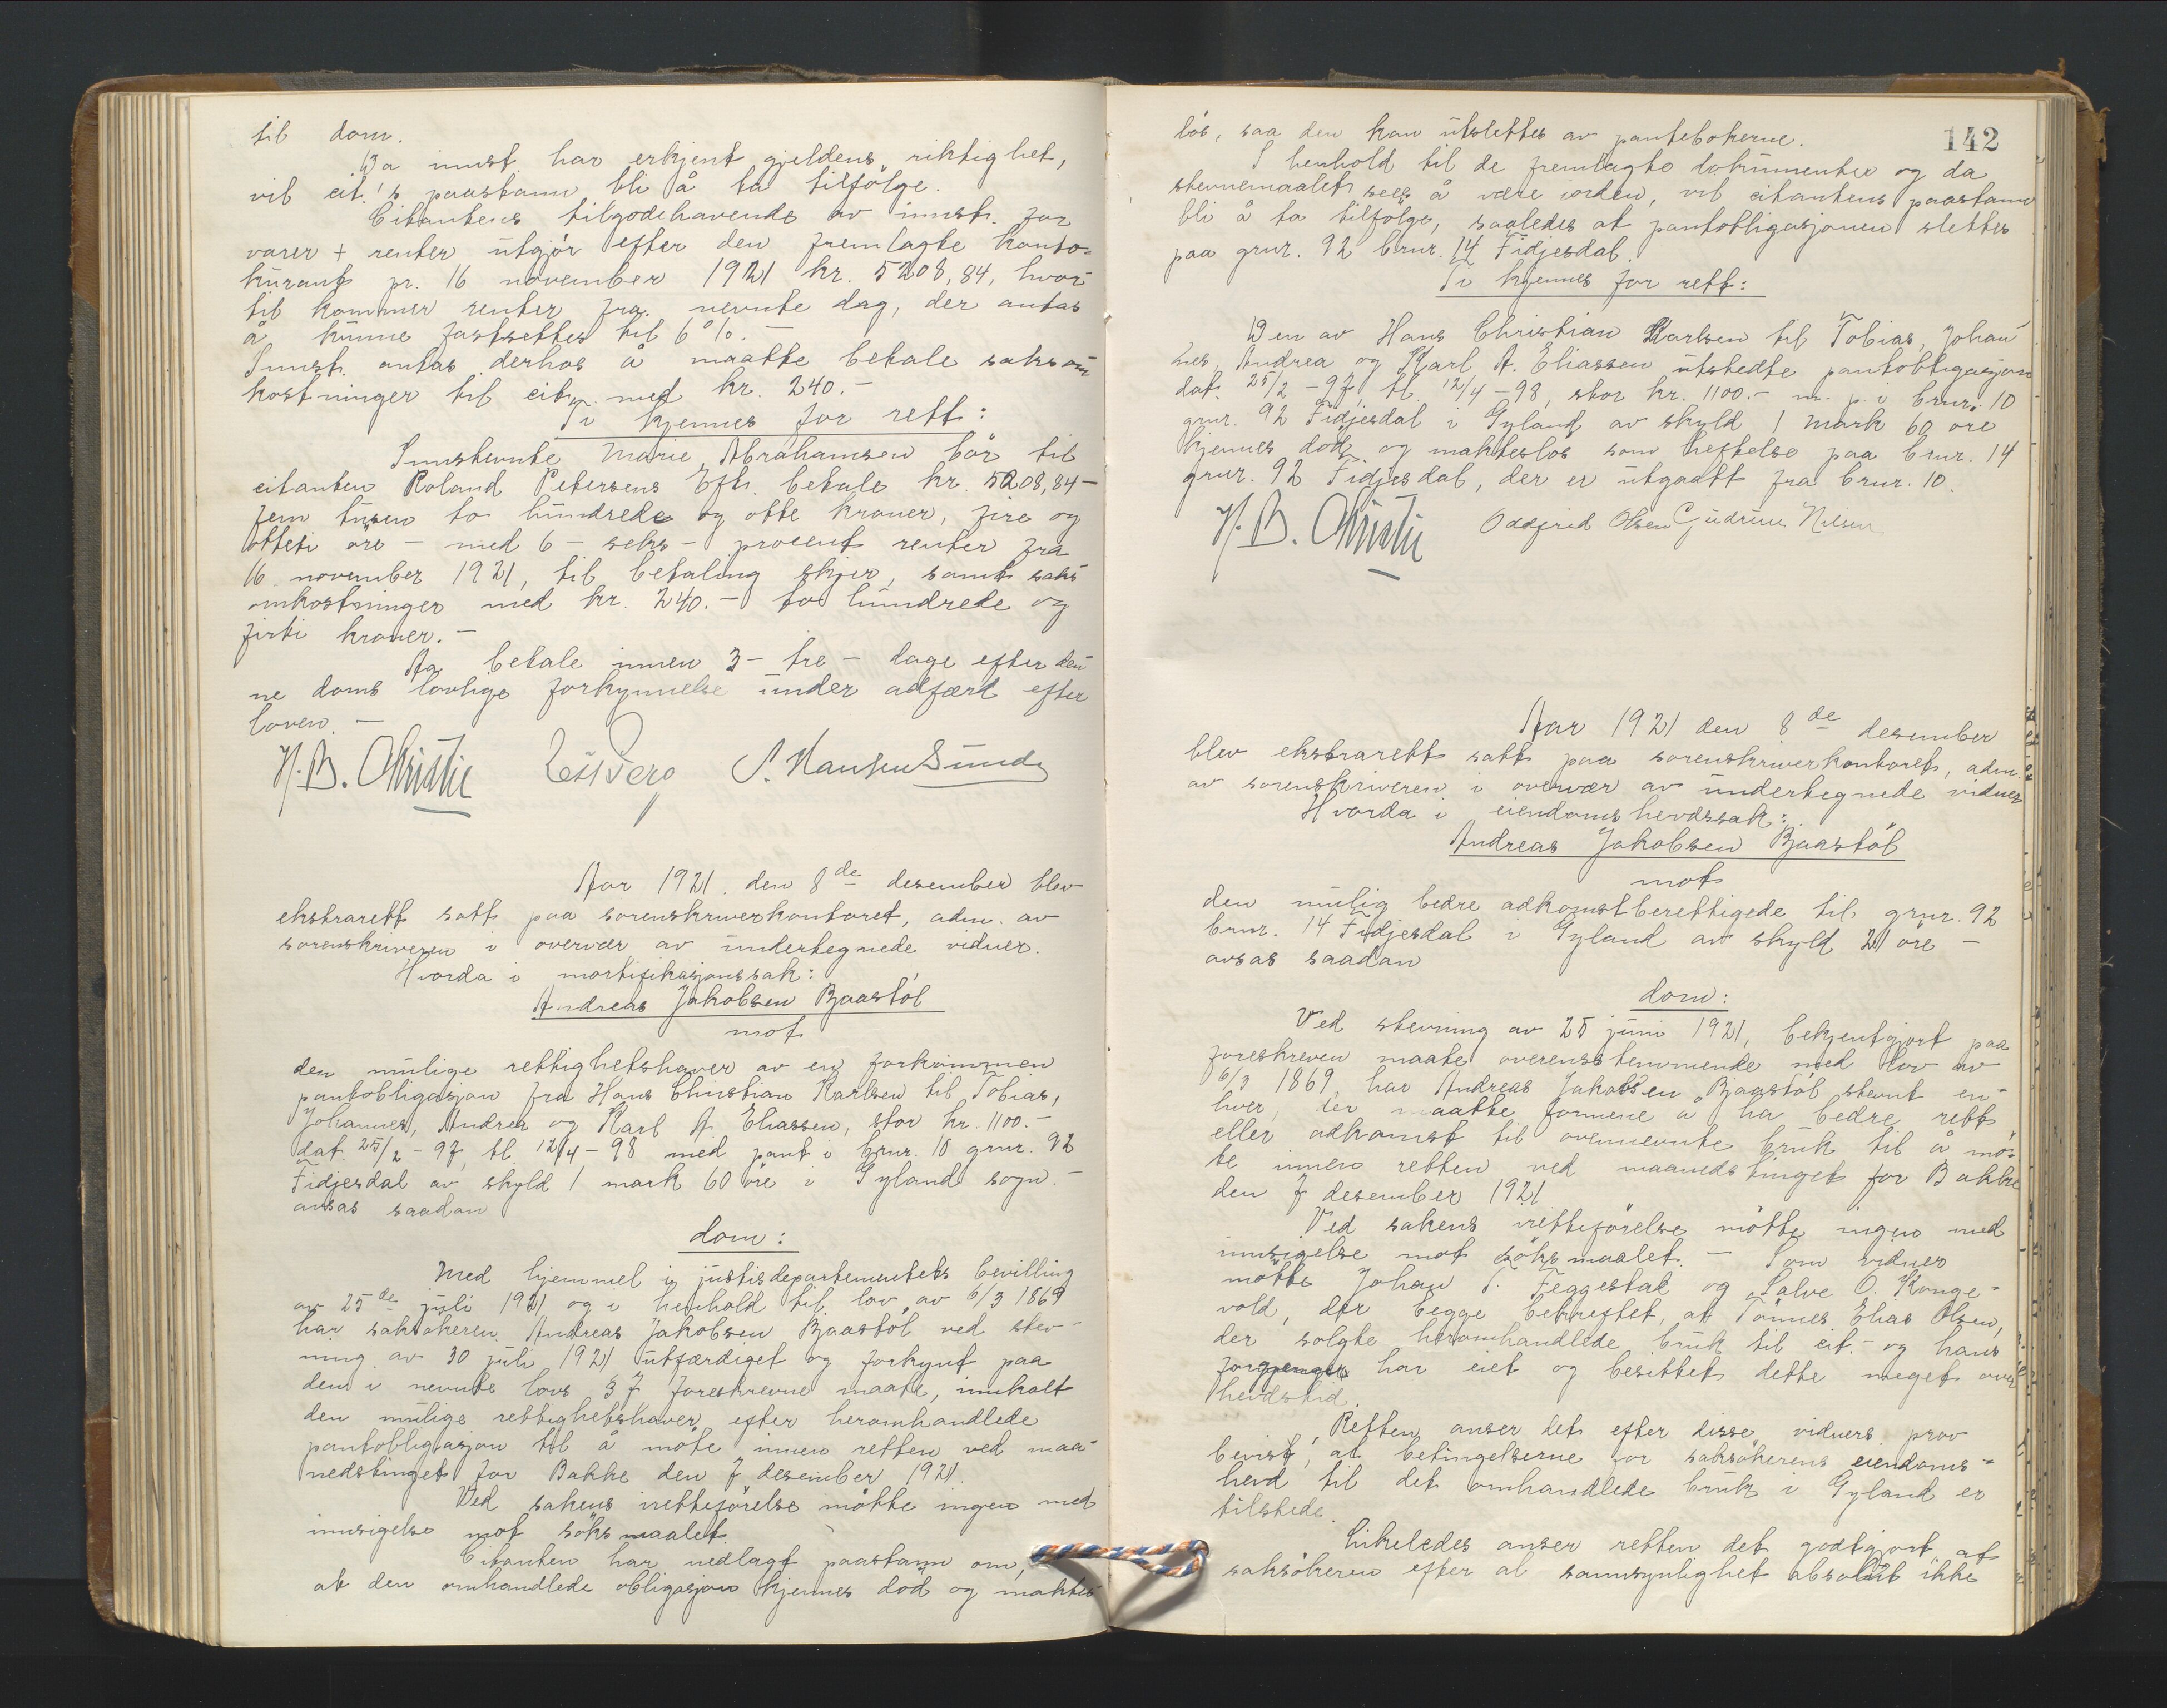 til dom.
Da innst. har erkjent gjeldens riktighet,
vil cit.'s paastann bli å ta tilfölge.
Citantens tilgodehavende av innst. for
varer + renter utgjör efter den fremlagte konto-
kurant pr. 16 november 1921 kr. 5208,84, hvor-
til kommer renter fra nevnte dag, der antas
å kunne fastsettes til 6%. –
Innst. antas derhos å maatte betale saksom-
kostninger til cit. med kr. 240.–
Ti kjennes for rett:
Innstevnte Marie Abrahamsen bör til
citanten Roland Petersens Eft. betale kr. 5208,84 –
fem tusen to hundrede og otte kroner, fire og
otteti öre – med 6 – seks – procent renter fra
16 november 1921, til betaling skjer, samt saks
omkostninger med kr. 240.– to hundrede og
firti kroner. –
Aa betale innen 3 – tre – dage efter den-
ne doms lovlige forkynnelse under adfærd efter
loven. –
H. B. Christie S. Hansen Sunde
Aar 1921 den 8de desember blev
ekstrarett satt paa sorenskriverkontoret, adm. av
sorenskriveren i overvær av undertegnede vidner.
Hvorda i mortifikasjonssak:
Andreas Jakobsen Baastöl
mot
den mulige rettighetshaver av en forkommen
pantobligasjon fra Hans Christian Karlsen til Tobias,
Johannes, Andrea og Karl A. Eliassen, stor kr. 1100.–
dat. 25/2 – 97, tl. 12/4 – 98 med pant i brnr. 10 grnr. 92
Fidjesdal av skyld 1 mark 60 öre i Gyland sogn. –
avsas saadan
dom:
Med hjemmel i justisdepartementets bevilling
av 25de juli 1921 og i henhold til lov av 6/3 1869
har saksökeren Andreas Jakobsen Baastöl ved stev-
ning av 30 juli 1921 utfærdiget og forkynt paa
den i nevnte lovs § 7 foreskrevne maate, innkalt
den mulige rettighetshaver efter heromhandlede
pantobligasjon til å möte innen retten ved maa-
nedstinget for Bakke den 7 desember 1921.
Ved sakens iretteförelse mötte ingen med
innsigelse mot söksmaalet.
Citanten har nedlagt paastann om,
at den omhandlede obligasjon kjennes död og maktes-
142
lös, saa den kan utslettes av pantebökerne.
I henhold til de fremlagte dokumenter og da
stevnemaalet sees å være iorden, vil citantens paastann
bli å ta tilfölge, saaledes at pantobligasjonen slettes
paa grnr. 92 brnr. 14 Fidjesdal.
Ti kjennes for rett:
Den av Hans Christian Karlsen til Tobias, Johan-
nes, Andrea og Karl A. Eliassen utstedte pantobligasjon
dat. 25/2 – 97, tl. 12/4 – 98, stor kr. 1100.– m. p. i brnr. 10
grnr. 92 Fidjesdal i Gyland av skyld 1 mark 60 öre
kjennes död og makteslös som heftelse paa brnr. 14
grnr. 92 Fidjesdal, der er utgaatt fra brnr. 10.
H. B. Christie Oddfrid Olsen Gudrun Nilsen
Aar 1921 den 8de desember
blev ekstrarett satt paa sorenskriverkontoret, adm.
av sorenskriveren i overvær av undertegnede vidner
Hvorda i eiendomshevdssak:
Andreas Jakobsen Baastöl
mot
den mulig bedre adkomstberettigede til grnr. 92
brnr. 14 Fidjesdal i Gyland av skyld 21 öre –
avsas saadan
dom:
Ved stevning av 25 juni 1921, bekjentgjort paa
foreskreven maate overensstemmende med lov av
6/3 1869, har Andreas Jakobsen Baastöl stevnt en-
hver, der maatte formene å ha bedre rett
eller adkomst til ovennevnte bruk til å mö-
te innen retten ved maanedstinget for Bakke
den 7 desember 1921
Ved sakens iretteförelse mötte ingen med
innsigelse mot söksmaalet. – Som vidner
mötte Johan T. Feggestad og Salve O. Konge-
vold, der begge bekreftet, at Tönnes Elias Olsen,
der solgte heromhandlede bruk til cit. – og hans
forgjenger har eiet og besittet dette meget over
hevdstid.
Retten anser det efter disse vidners prov
bevist, at betingelserne for saksökerens eiendoms-
hevd til det omhandlede bruk i Gyland er
tilstede.
Likeledes anser retten det godtgjort, at
saksökeren efter al sannsynlighet absolut ikke